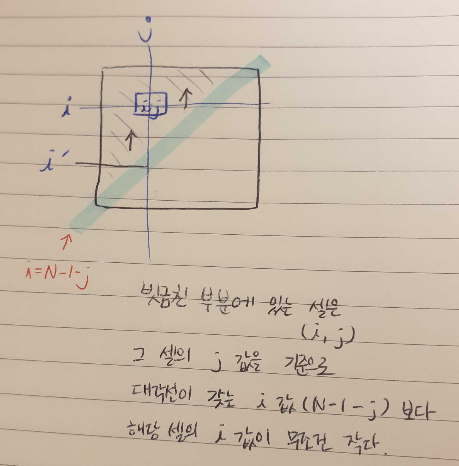 j
i
i,j
i′
i=N-1-j
빗금친 부분에 있는 셀은
(i, j)
그 셀의 j 값을 기준으로
대각선이 갖는 i 값 (N-1-j) 보다
해당 셀의 i 값이 무조건 작다.